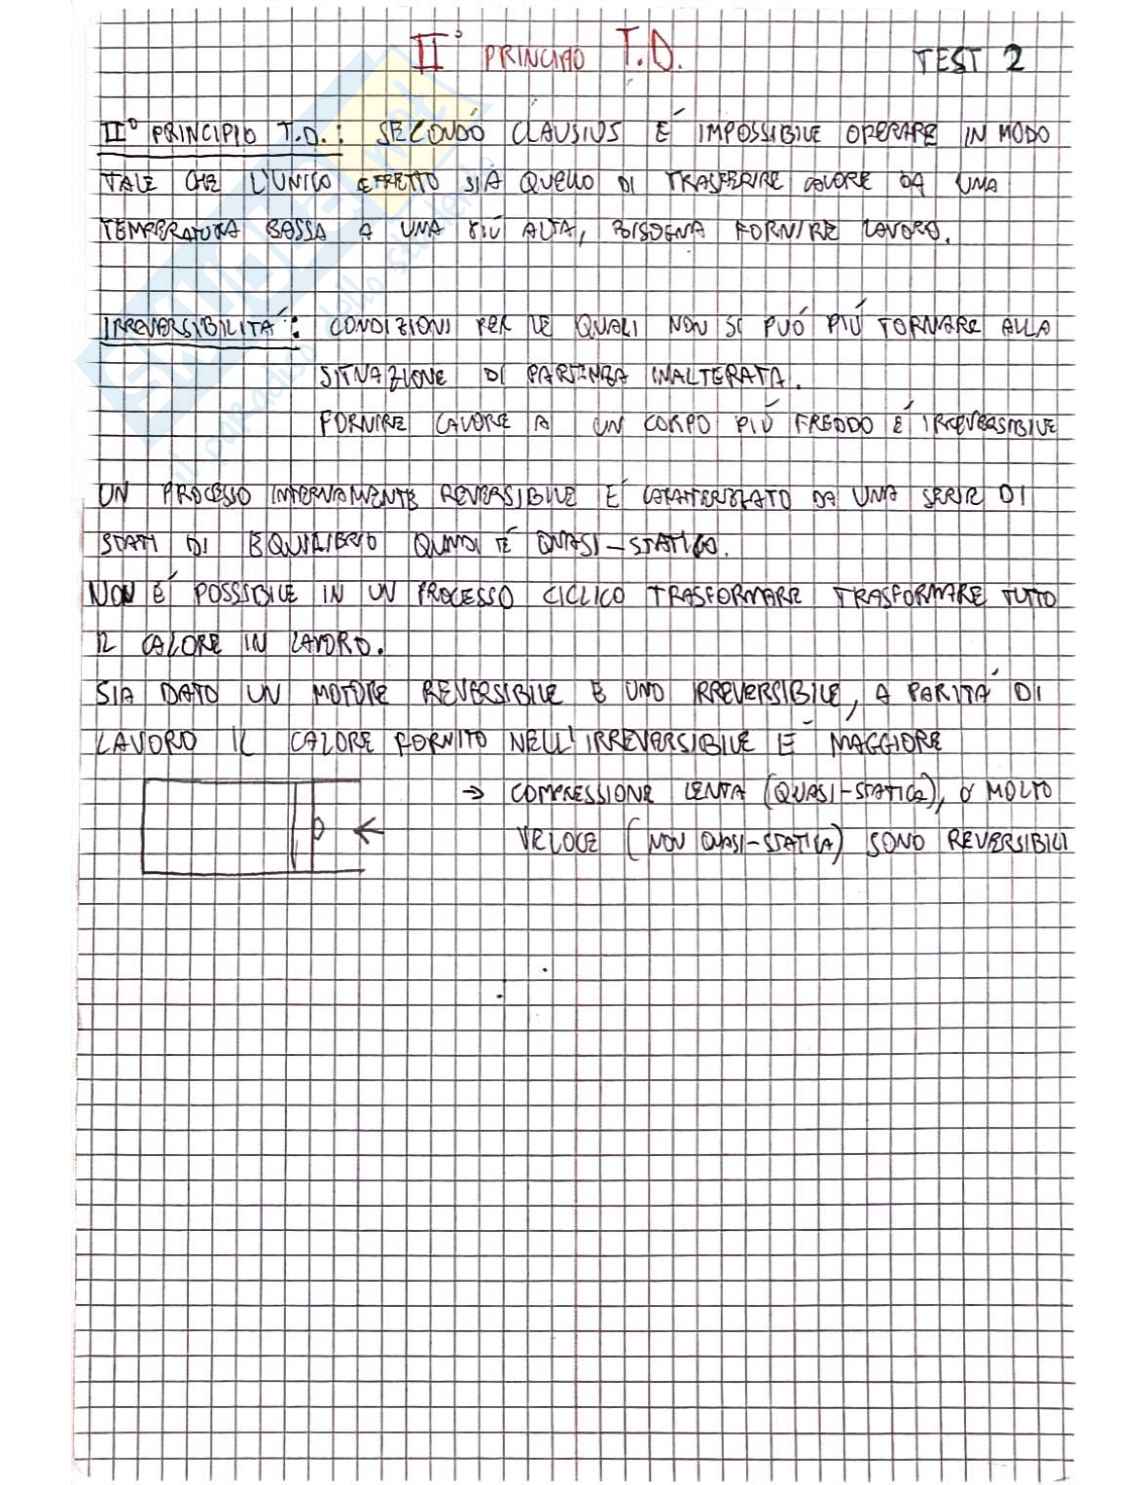 II° PRINCIPIO T.D.
TEST 2
II° PRINCIPIO T.D.: SECONDO CLAUSIUS É IMPOSSIBILE OPERARE IN MODO
TALE CHE L'UNICO EFFETTO SIA QUELLO DI TRASFERIRE CALORE DA UNA
TEMPERATURA BASSA A UNA PIÚ ALTA, BISOGNA FORNIRE LAVORO.
IRREVERSIBILITÁ: CONDIZIONI PER LE QUALI NON SI PUÓ PIÚ TORNARE ALLA
SITUAZIONE DI PARTENZA INALTERATA.
FORNIRE CALORE A UN CORPO PIÚ FREDDO É IRREVERSIBILE
UN PROCESSO INTERNAMENTE REVERSIBILE É CARATTERIZZATO DA UNA SERIE DI
STATI DI EQUILIBRIO QUINDI É QUASI-STATICO.
NON É POSSIBILE IN UN PROCESSO CICLICO TRASFORMARE TRASFORMARE TUTTO
IL CALORE IN LAVORO.
SIA DATO UN MOTORE REVERSIBILE E UNO IRREVERSIBILE, A PARITÁ DI
LAVORO IL CALORE FORNITO NELL'IRREVERSIBILE É MAGGIORE
→ COMPRESSIONE LENTA (QUASI-STATICA), O MOLTO
VELOCE (NON QUASI-STATICA) SONO REVERSIBILI